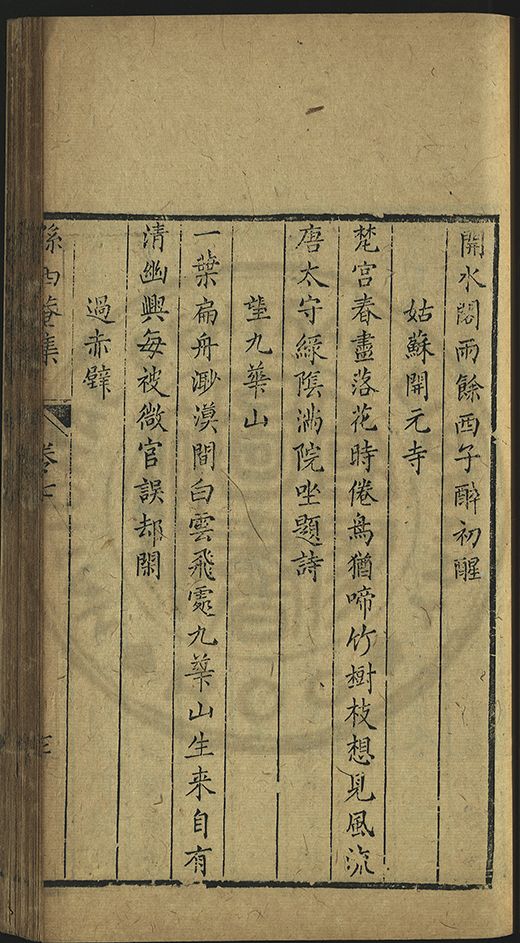 開水閣雨餘西子醉初醒
姑蘇開元寺
梵宮春盡落花時倦鳥猶啼竹樹枝想見風流
唐太守綠陰滿院坐題詩
望九華山
一葉扁舟渺漠間白雲飛處九華山生来自有
清幽興每被微官誤却閑
過赤壁
孫西菴集
卷七